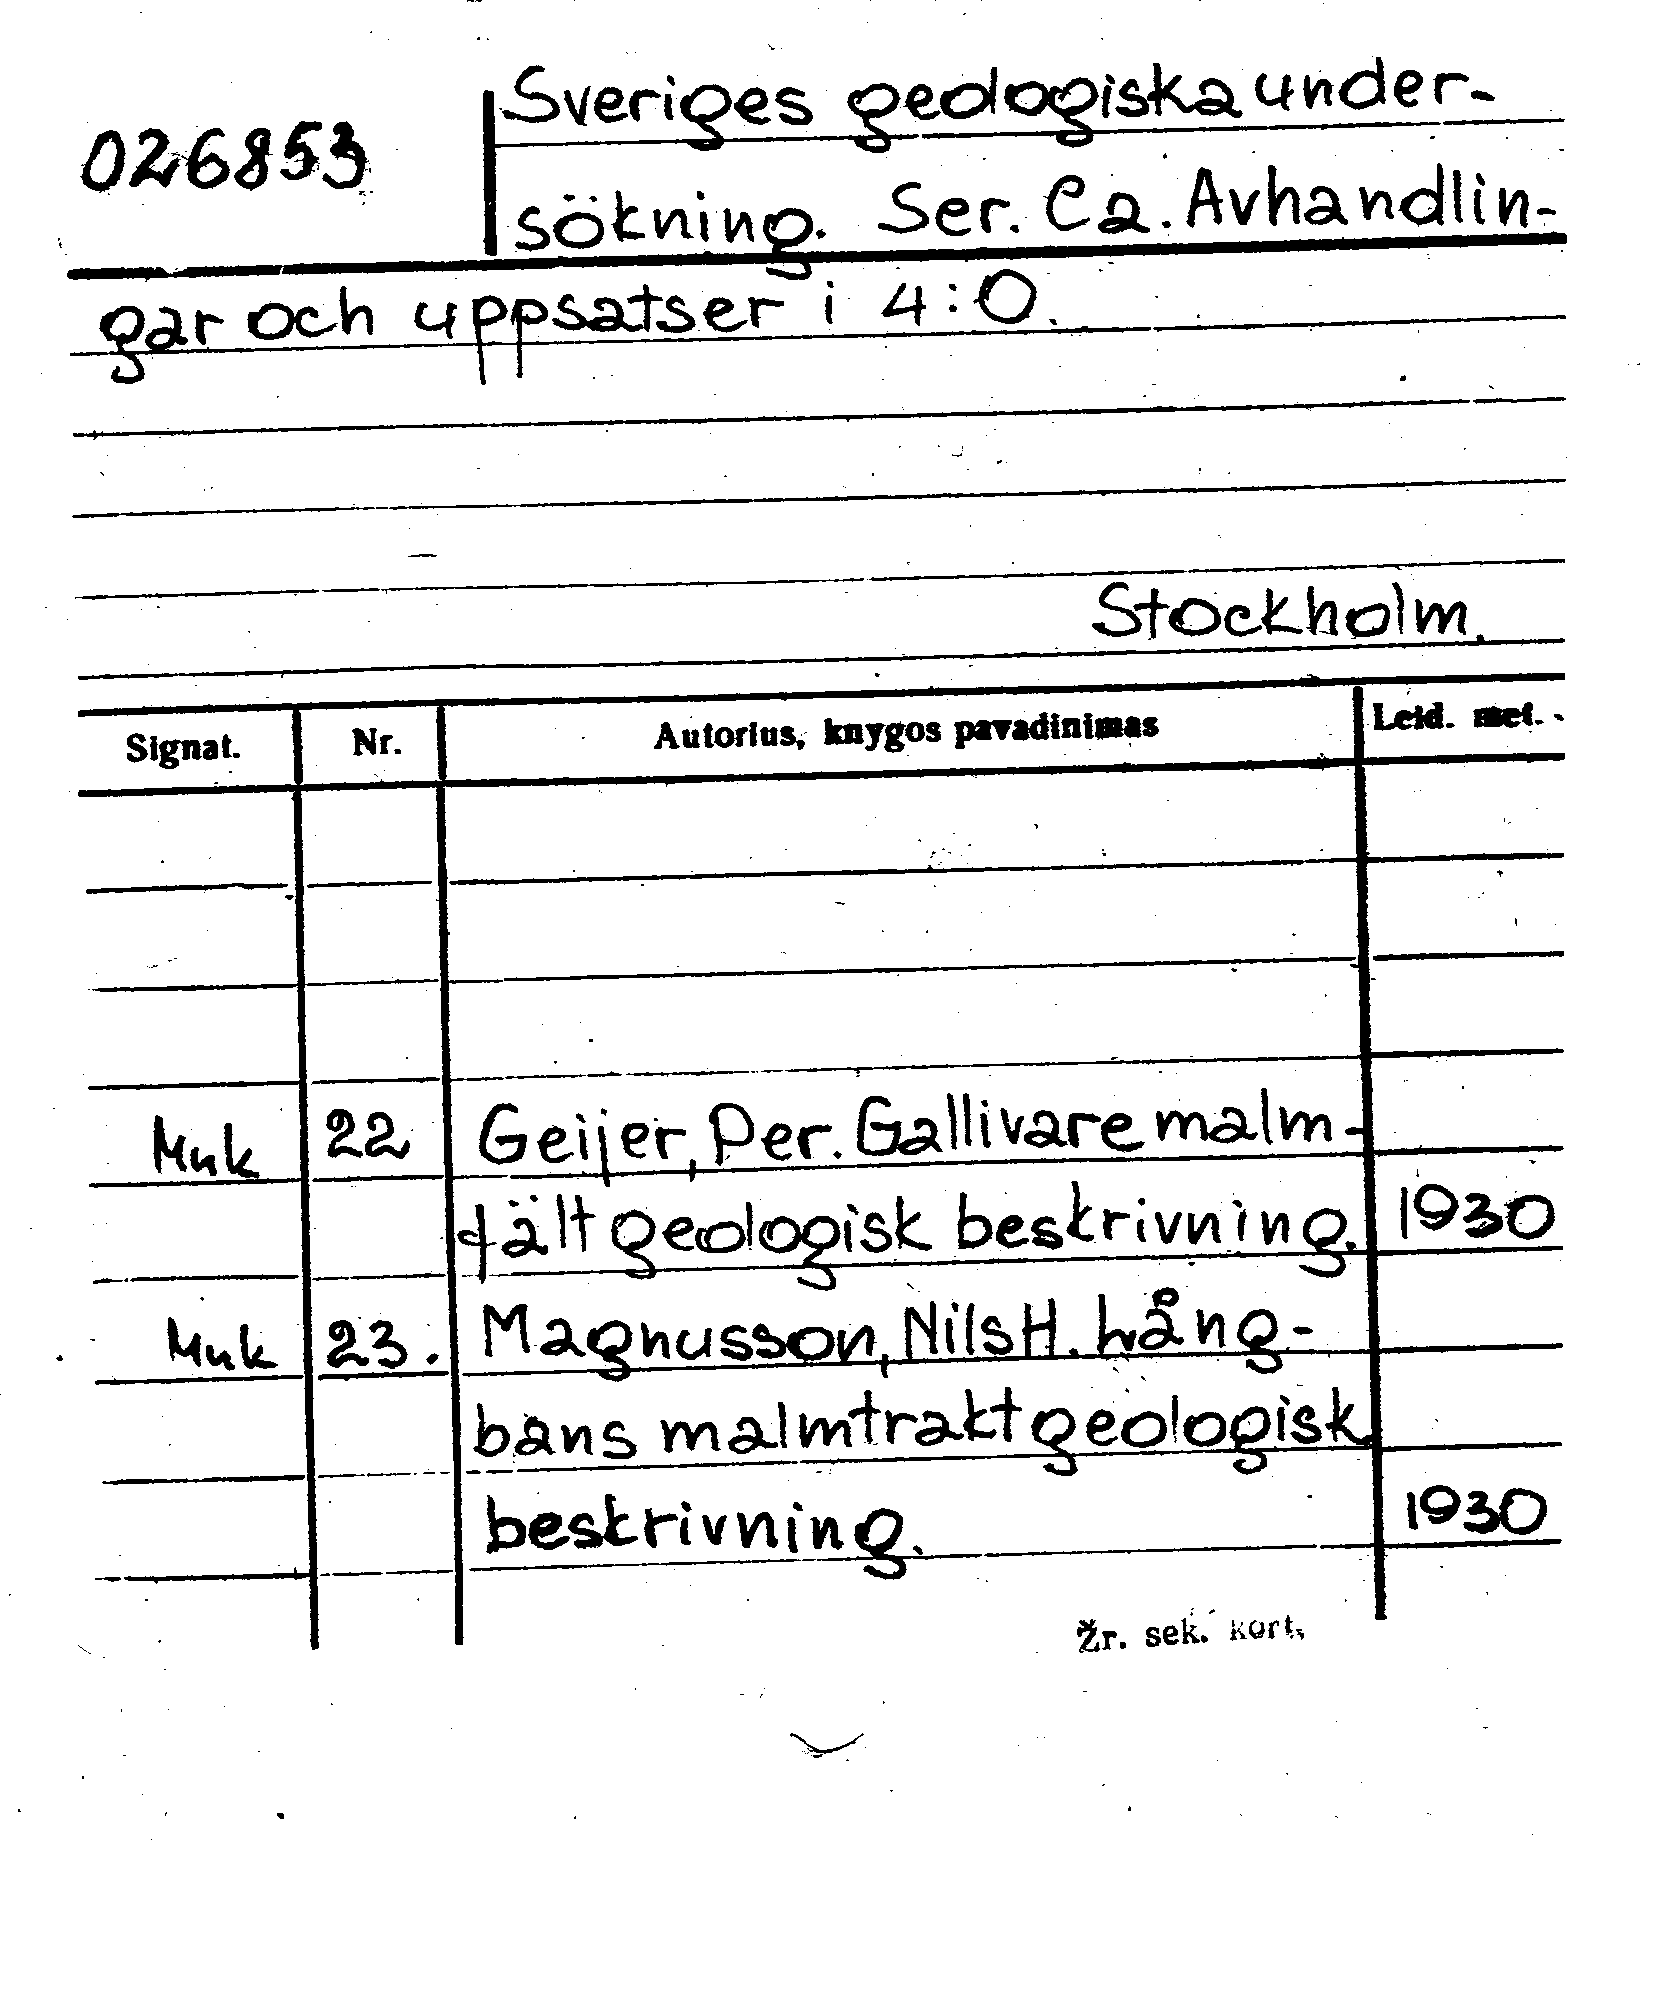 026853
Sveriges geologiska under-
sökning. Ser. Ca. Avhandlin-
gar och uppsatser i 4:0.
Stockholm.
Signat. Nr. Autorius, knygos pavadinimas Leid. met.
Muk 22 Geijer, Per. Gallivare malm-
fält geologisk beskrivning. 1930
Muk 23. Magnusson, Nils H. Lång-
bans malmtrakt geologisk
beskrivning. 1930
Žr. sek. kort.